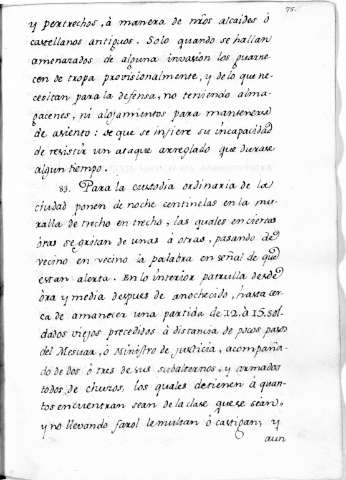 75.
y pertrechos, à manera de nr̃os alcaides ò
castellanos antiguos. Solo quando se hallan
amenazados de alguna invasion los guarne-
cen de tropa provisionalmente, y de lo que ne-
cesitan para la defensa, no teniendo alma-
gacenes, ni alojamientos para mantenerse
de asiento: de que se infiere su incapacidad
de resistir un ataque arreglado que durase
algun tiempo.
83. Para la custodia ordinaria de la
ciudad ponen de noche centinelas en la mu-
ralla de trecho en trecho, las quales en ciertas
òras se gritan de unas à otras, pasando de
vecino en vecino la palabra en señal de que
estan alerta. En lo interior patrulla desde
òra y media despues de anochecido, hasta cer-
ca de amanecer una partida de 12. à 15. sol-
dados viejos precedidos à distancia de pocos pasos
del Mesuar, ò Ministro de justicia, acompaña-
do de dos ò tres de sus subalternos, y armados
todos de chuzos, los quales detienen à quan-
tos encuentran sean de la clase que se sean,
y no llevando farol le multan ò castigan; y
aun